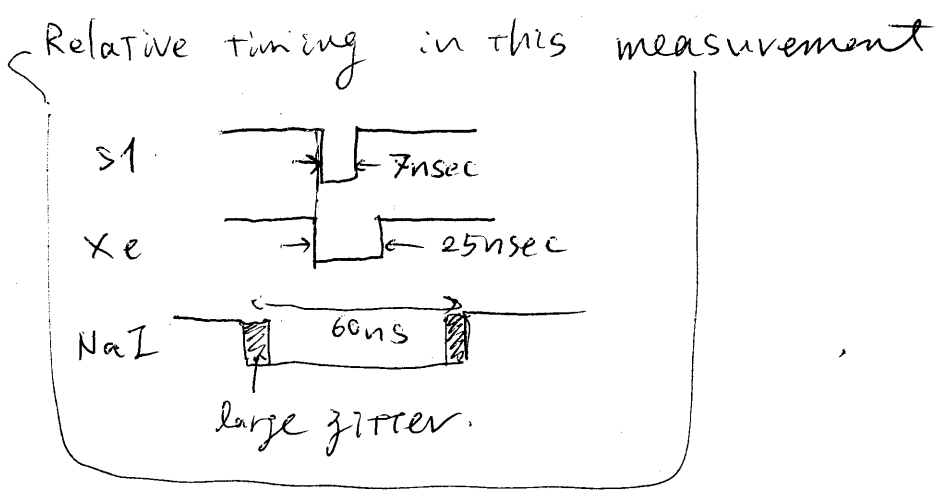 Relative timing in this measurement
S1.
7nsec
Xe
25nsec
NaI
60ns
large jitter.